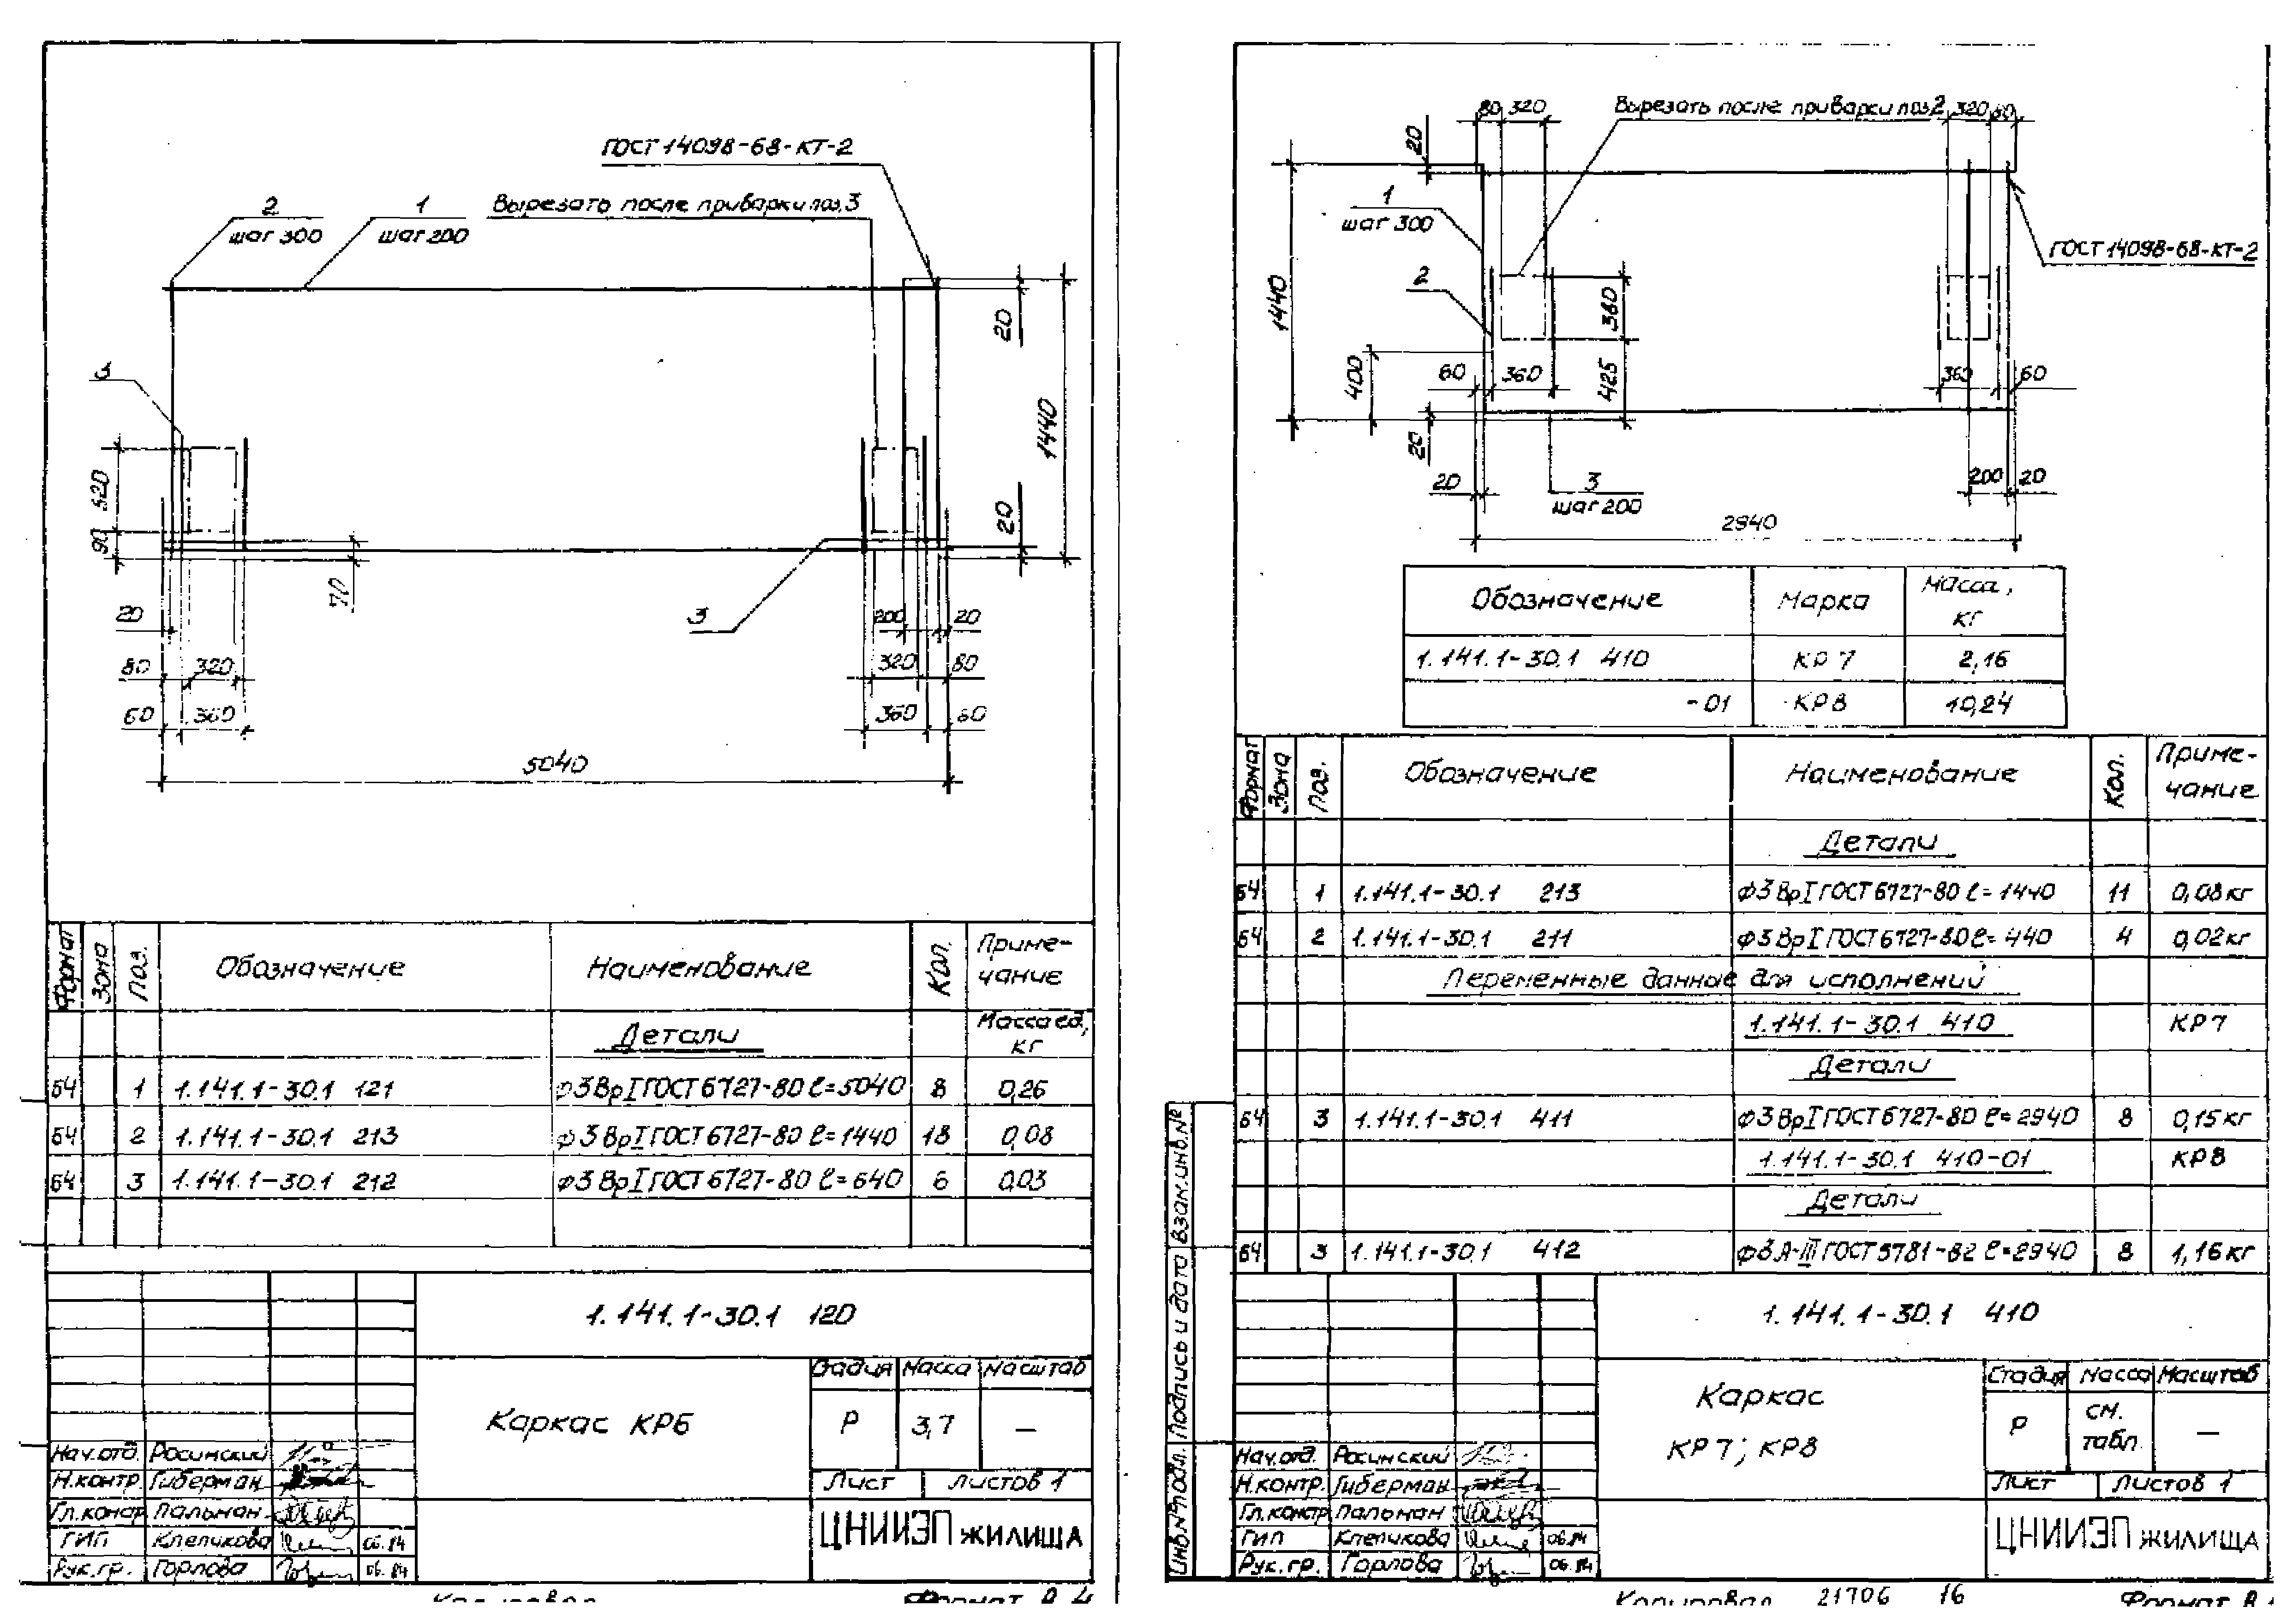 ГОСТ 14098-68-КТ-2
Вырезать после приварки поз. 3
2
шаг 300
1
шаг 200
3
20
1440
20
520
90
70
20
3
200
20
80
320
320
80
60
360
360
60
5040
Формат
Зона
Поз.
Обозначение
Наименование
Кол.
Приме-
чание
Детали
Масса ед,
кг
Б4 1 1.141.1-30.1 121 ф3 ВрI ГОСТ 6727-80 ℓ=5040 8 0,26
Б4 2 1.141.1-30.1 213 ф3 ВрI ГОСТ 6727-80 ℓ=1440 18 0,08
Б4 3 1.141.1-30.1 212 ф3 ВрI ГОСТ 6727-80 ℓ=640 6 0,03
1.141.1-30.1 120
Каркас КР6
Стадия Масса Масштаб
Р 3,7 —
Лист Листов 1
ЦНИИЭП жилища
Нач.отд. Росинский
Н.контр. Гиберман
Гл.констр. Пальман
ГИП Клепикова 06.84
Рук.гр. Горлова 06.84
Копировал
Формат
80 320
Вырезать после приварки поз 2
320 80
20
1
шаг 300
ГОСТ 14098-68-КТ-2
2
1440
360
400
425
60 360
360 60
20
20
3
шаг 200
200 20
2940
Обозначение Марка Масса,
кг
1.141.1-30.1 410 КР 7 2,16
-01 КР8 10,24
Формат
Зона
Поз.
Обозначение
Наименование
Кол.
Приме-
чание
Детали
Б4 1 1.141.1-30.1 213 ф3 ВрI ГОСТ 6727-80 ℓ=1440 11 0,08кг
Б4 2 1.141.1-30.1 211 ф3 ВрI ГОСТ 6727-80 ℓ=440 4 0,02кг
Переменные данные для исполнений
1.141.1-30.1 410 КР7
Детали
Б4 3 1.141.1-30.1 411 ф3 ВрI ГОСТ 6727-80 ℓ=2940 8 0,15кг
1.141.1-30.1 410-01 КР8
Детали
Б4 3 1.141.1-30.1 412 ф8 А-III ГОСТ 5781-82 ℓ=2940 8 1,16кг
Взам.инв.№
Подпись и дата
Инв.№подл.
1.141.1-30.1 410
Каркас
КР7; КР8
Стадия Масса Масштаб
Р см.
табл. —
Лист Листов 1
ЦНИИЭП жилища
Нач.отд. Росинский
Н.контр. Гиберман
Гл.констр Пальман
ГИП Клепикова 06.84
Рук.гр. Горлова 06.84
Копировал 21706 16
Формат